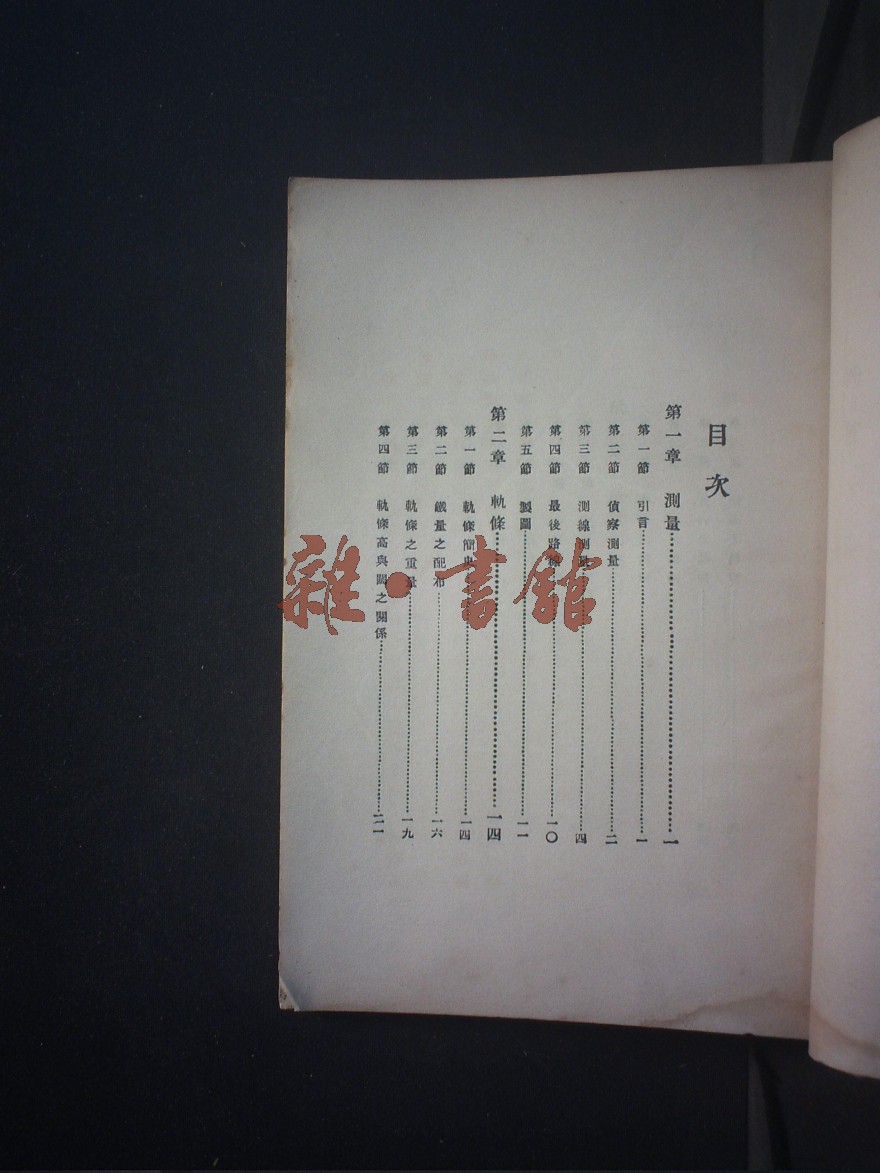 目次
第一章 測量 一
第一節 引言 一
第二節 偵察測量 二
第三節 測線測量 四
第四節 最後路線 一〇
第五節 製圖 一一
第二章 軌條 一四
第一節 軌條簡史 一四
第二節 鐵量之配布 一六
第三節 軌條之重量 一九
第四節 軌條高與闊之關係 二一
雜·書館